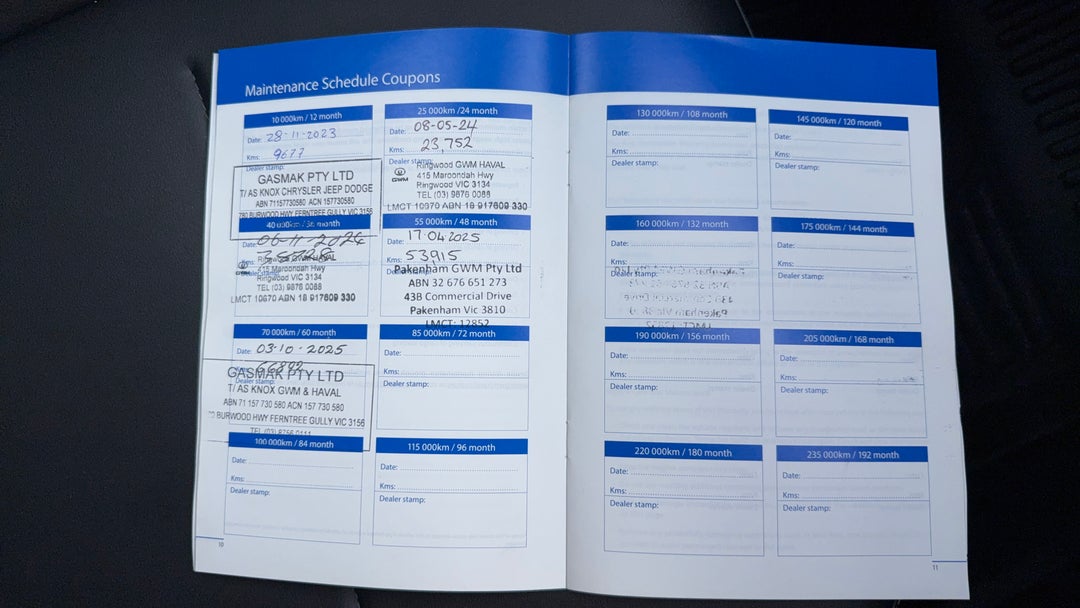 Maintenance Schedule Coupons
10 000km / 12 month
Date: 28-11-2023
Kms: 9677
Dealer stamp:
GASMAK PTY LTD
T/ AS KNOX CHRYSLER JEEP DODGE
ABN 71157730580 ACN 157730580
780 BURWOOD HWY FERNTREE GULLY VIC 3156
25 000km /24 month
Date: 08-05-24
Kms: 23,752
Dealer stamp:
GWM
Ringwood GWM HAVAL
415 Maroondah Hwy
Ringwood VIC 3134
TEL (03) 9876 0088
LMCT 10670 ABN 18 917609 330
40 000km / 36 month
Date: 06-11-2024
Kms:
Ringwood GWM HAVAL
415 Maroondah Hwy
Ringwood VIC 3134
TEL (03) 9876 0088
LMCT 10670 ABN 18 917609 330
55 000km / 48 month
Date: 17.04.2025
Kms: 53,915
Dealer stamp:
Pakenham GWM Pty Ltd
ABN 32 676 651 273
43B Commercial Drive
Pakenham Vic 3810
LMCT: 12852
70 000km / 60 month
Date: 03-10-2025
GASMAK PTY LTD
T/ AS KNOX GWM & HAVAL
ABN 71 157 730 580 ACN 157 730 580
BURWOOD HWY FERNTREE GULLY VIC 3156
TEL (03) 8756 0111
85 000km / 72 month
Date:
Kms:
Dealer stamp:
100 000km / 84 month
Date:
Kms:
Dealer stamp:
115 000km / 96 month
Date:
Kms:
Dealer stamp:
10
130 000km / 108 month
Date:
Kms:
Dealer stamp:
145 000km / 120 month
Date:
Kms:
Dealer stamp:
160 000km / 132 month
Date:
Kms:
Dealer stamp:
175 000km / 144 month
Date:
Kms:
Dealer stamp:
190 000km / 156 month
Date:
Kms:
Dealer stamp:
205 000km / 168 month
Date:
Kms:
Dealer stamp:
220 000km / 180 month
Date:
Kms:
Dealer stamp:
235 000km / 192 month
Date:
Kms:
Dealer stamp:
11